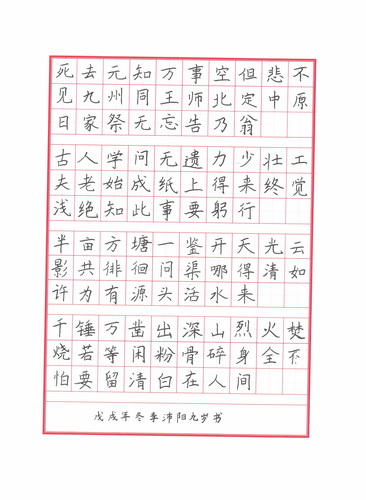 死去元知万事空但悲不
见九州同王师北定中原
日家祭无忘告乃翁
古人学问无遗力少壮工
夫老始成纸上得来终觉
浅绝知此事要躬行
半亩方塘一鉴开天光云
影共徘徊问渠哪得清如
许为有源头活水来
千锤万凿出深山烈火焚
烧若等闲粉骨碎身全不
怕要留清白在人间
戊戌年冬季沛阳九岁书